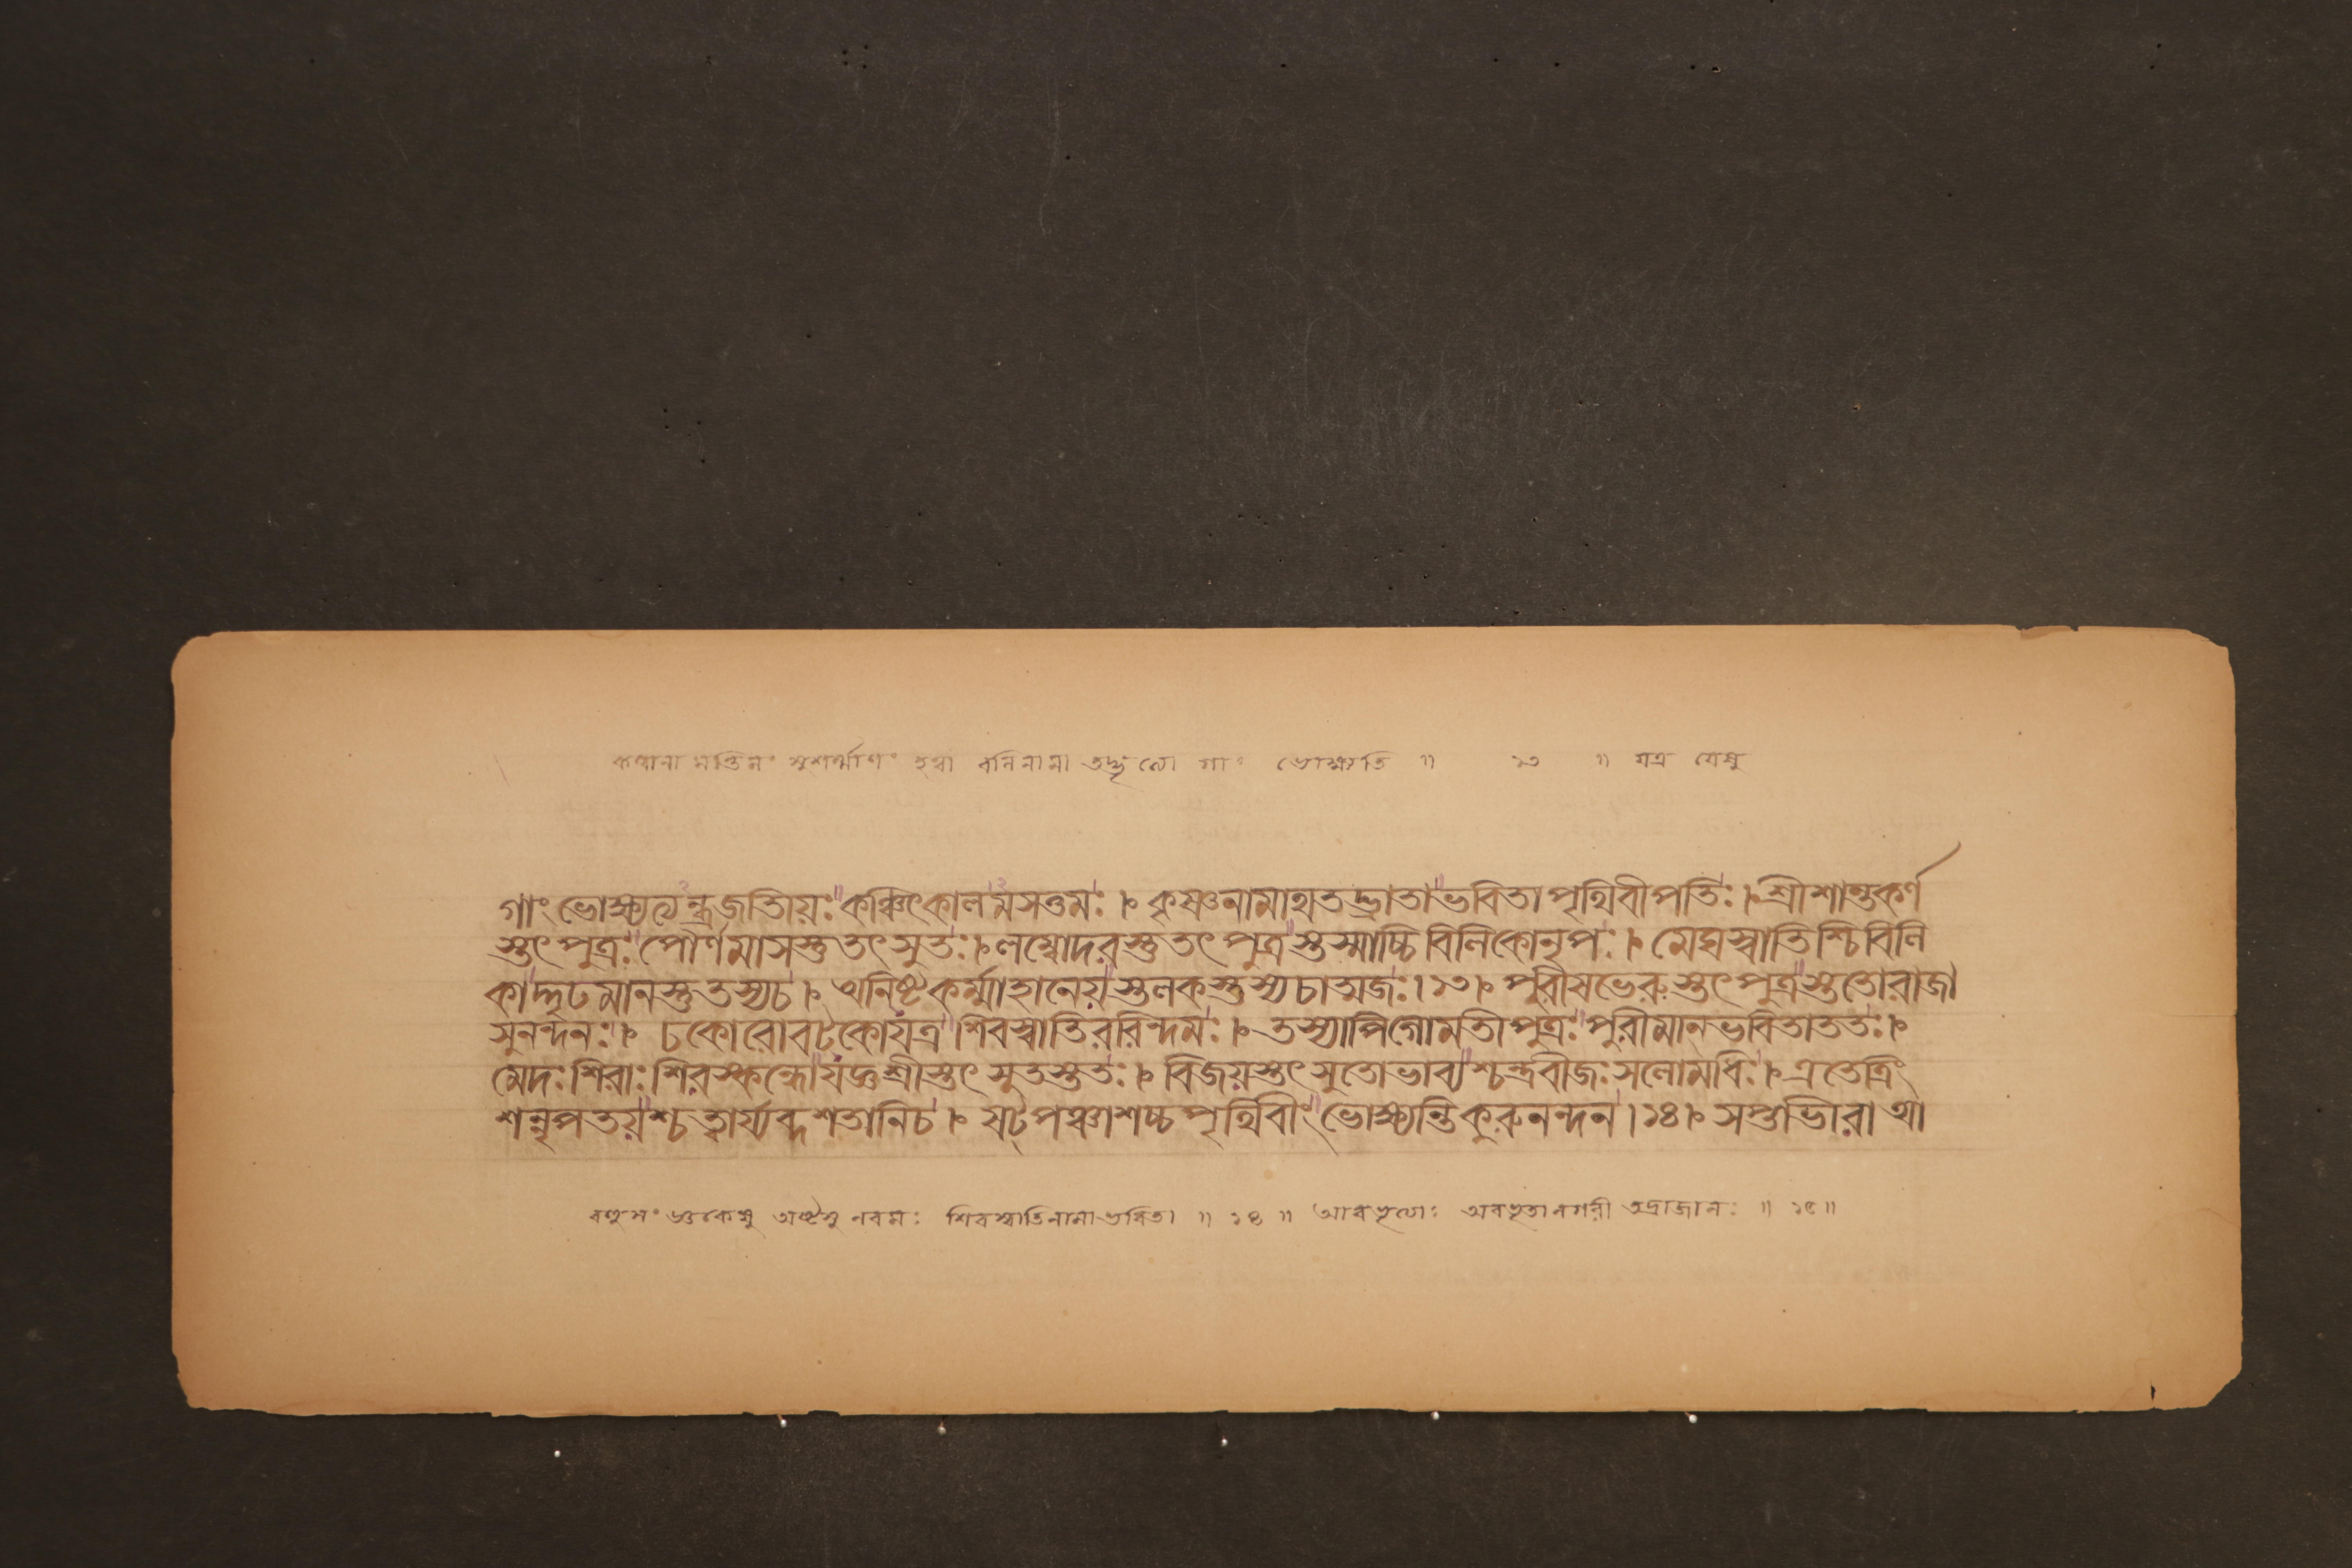 কণ্বানামন্তিমং সুশর্ম্মাণং হত্বা বলিনামা তদ্ভৃত্যো গাং ভোক্ষ্যতি ॥ ১৩ ॥ যত্র যেষু
গাং ভোক্ষ্যত্যন্ধ্রজাতীয়ঃ কঞ্চিৎকালমসত্তমঃ । কৃষ্ণনামাথতদ্ভ্রাতাভবিতাপৃথিবীপতিঃ । শ্রীশান্তকর্ণ
স্তৎপুত্রঃ পৌর্ণমাসস্তুতৎসুতঃ । লম্বোদরস্তুতৎপুত্রস্তস্মাচ্চিবিলিকোনৃপঃ । মেঘস্বাতিশ্চিবিলি
কাদ্দৃঢমানস্তুতস্যচ । অনিষ্টকর্ম্মাহালেয়স্তলকস্তস্যচাত্মজঃ । ১৩ । পুরীষভেরুস্তৎপুত্রস্ততোরাজা
সুনন্দনঃ । চকোরোবটকোযত্র শিবস্বাতিররিন্দমঃ । তস্যাপিগোমতীপুত্রঃ পুরীমানভবিতাততঃ ।
মেদঃশিরাঃ শিবস্কন্ধোযজ্ঞশ্রীস্তৎসুতস্ততঃ । বিজয়স্তৎসুতোভাব্যশ্চন্দ্রবীজঃসলোমধিঃ । এতেত্রিং
শন্নৃপতয়শ্চত্বার্য্যব্দশতানিচ । ষট্পঞ্চাশচ্চপৃথিবীং ভোক্ষ্যন্তিকুরুনন্দন । ১৪ । সপ্তাভীরা আ
অষ্টসু নবমঃ শিবস্বাতিনামা ভবিতা ॥ ১৪ ॥ আবভৃত্যাঃ অবভৃতানগরী তদ্রাজানঃ ॥ ১৫ ॥